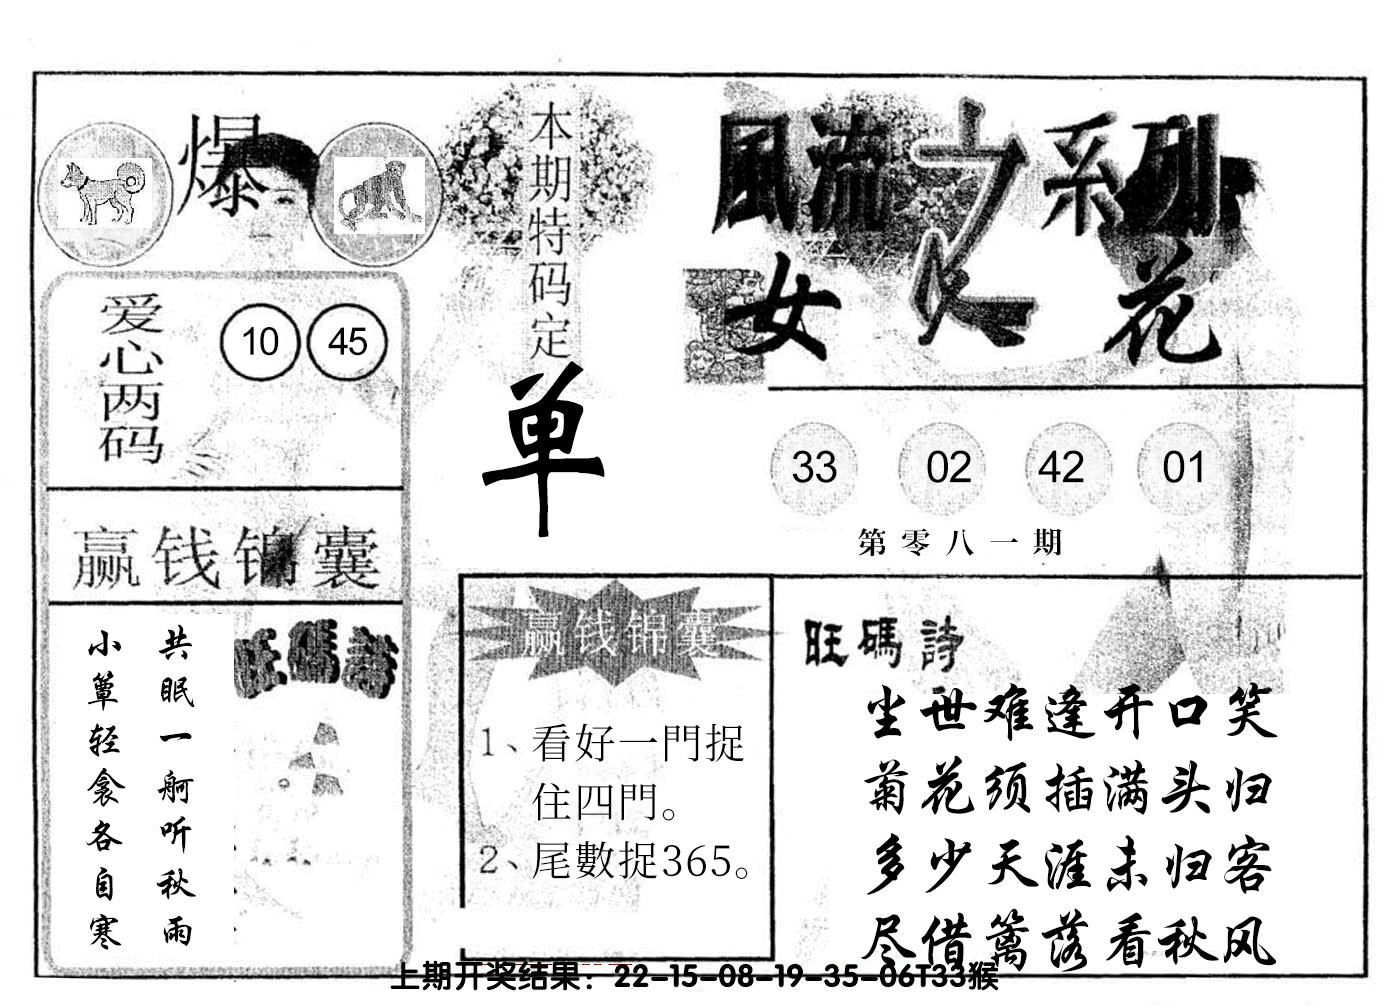 爆
本期特码定
单
風流之系列
女人花
爱心两码
10 45
33 02 42 01
第零八一期
赢钱锦囊
共眠一舸听秋雨
小簟轻衾各自寒
旺碼詩
赢钱锦囊
1、看好一門捉
住四門。
2、尾數捉365。
旺碼詩
尘世难逢开口笑
菊花须插满头归
多少天涯未归客
尽借篱落看秋风
上期开奖结果：22-15-08-19-35-06T33猴